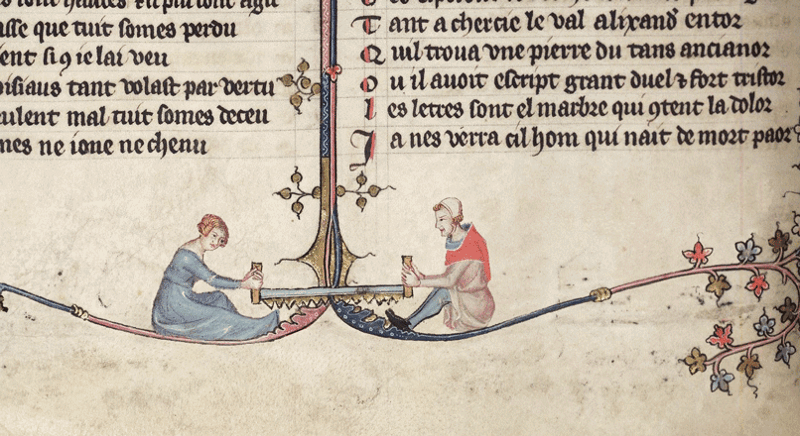 asse que tuit somes perdu
ent si q ie lai veu
oisiaus tant volast par vertu
aulent mal tuit somes deceu
nes ne ione ne chenu
Tant a chercie le val alixand entor
Quil troua vne pierre du tans ancianor
ou il auoit escript grant duel ⁊ fort tristor
les letres sont el marbre qui ꝯtent la dolor
Ia nes verra cil hom qui nait de mort paor